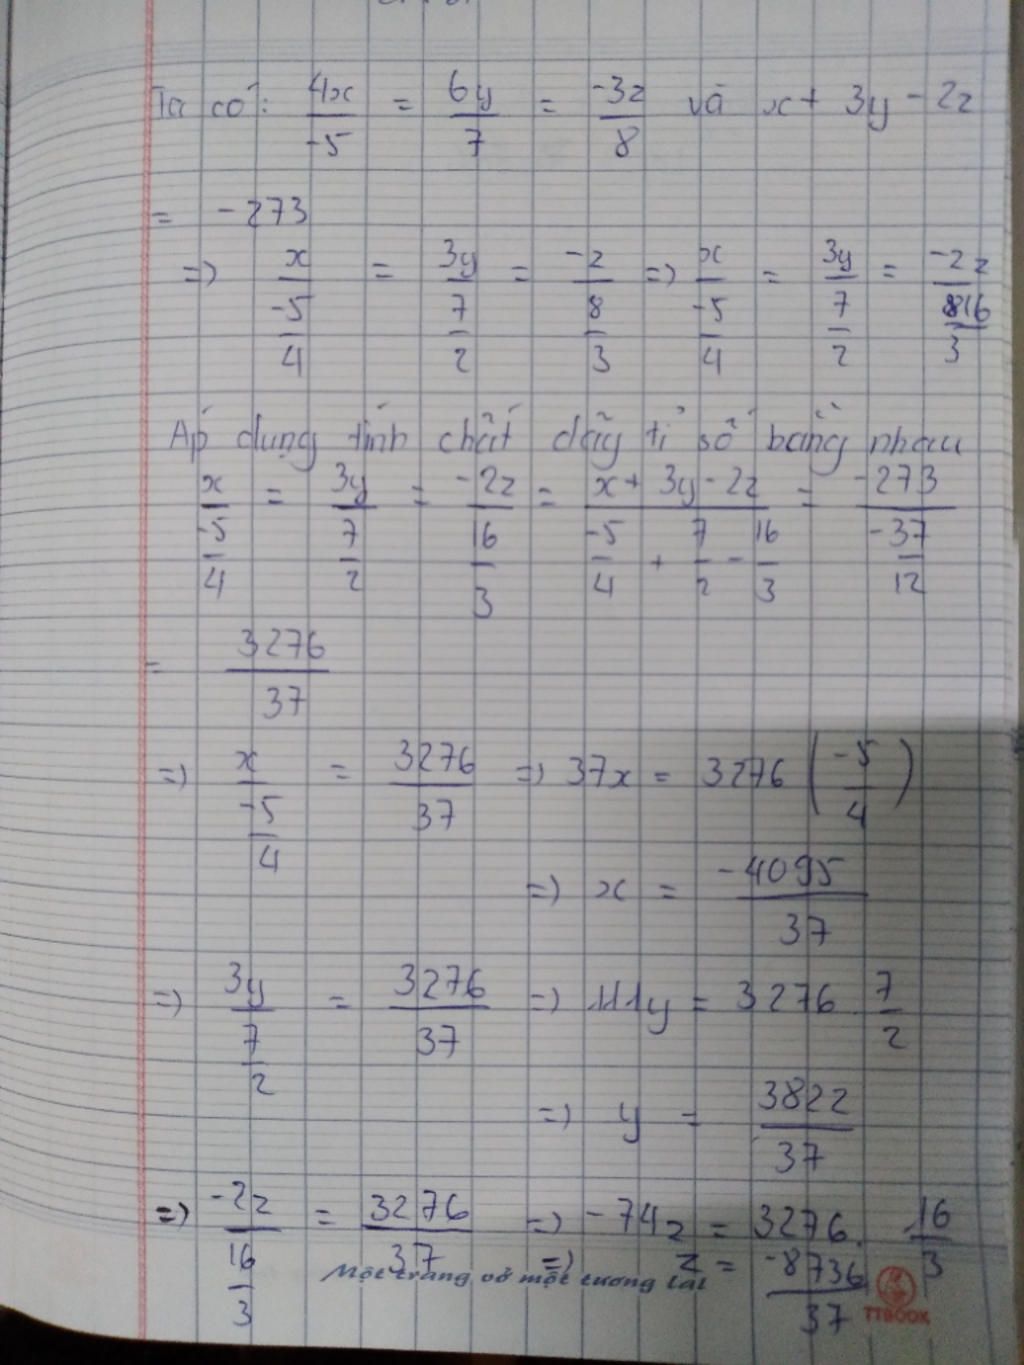 Ta có: 4x/-5 = 6y/7 = -3z/8 và x + 3y - 2z
= -273
=> x/(-5/4) = 3y/(7/2) = -z/(8/3) => x/(-5/4) = 3y/(7/2) = -2z/(16/3)
Áp dụng tính chất dãy tỉ số bằng nhau
x/(-5/4) = 3y/(7/2) = -2z/(16/3) = (x + 3y - 2z)/(-5/4 + 7/2 - 16/3) = -273/(-37/12)
= 3276/37
=> x/(-5/4) = 3276/37 => 37x = 3276 (-5/4)
=> x = -4095/37
=> 3y/(7/2) = 3276/37 => 111y = 3276 . 7/2
=> y = 3822/37
=> -2z/(16/3) = 3276/37 => -74z = 3276 . 16/3
=> z = -8736/37
Một trang vở một tương lai
TTBOOK